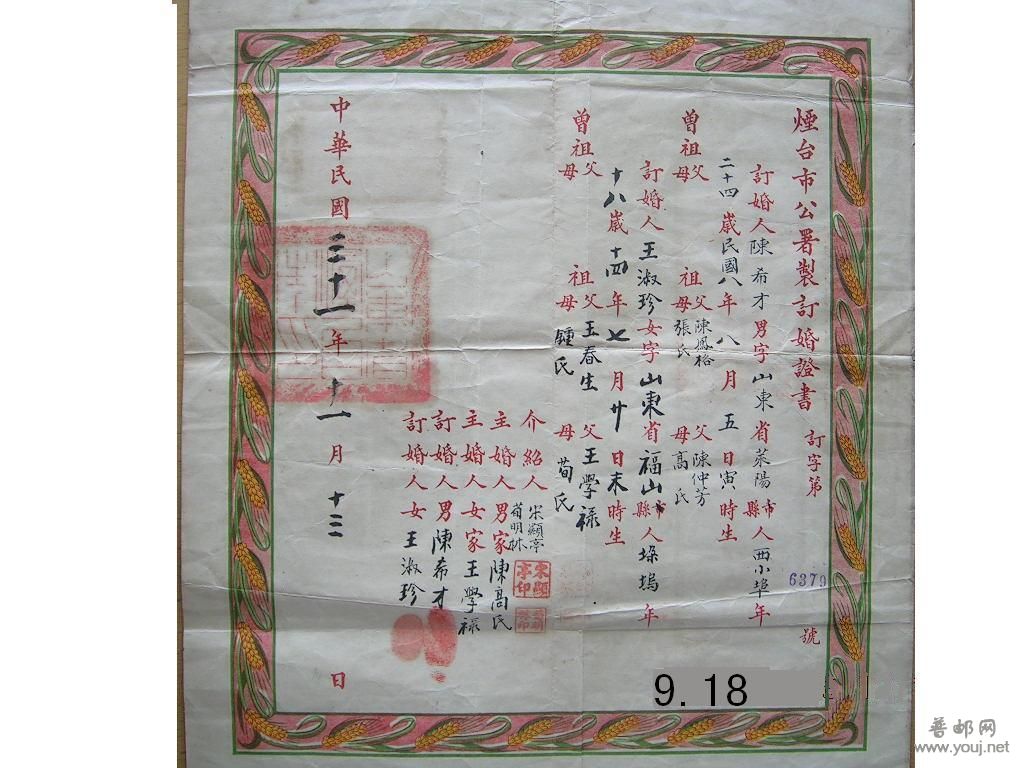 煙台市公署製訂婚證書
訂字第 6379 號
訂婚人陳希才男字山東省萊陽市縣人西小埠年
二十四歲民國八年八月五日寅時生
曾祖父母 祖父陳鳳格 母張氏 父陳仲芳 母高氏
訂婚人王淑珍女字山東省福山市縣人垛塢年
十八歲十四年七月廿日未時生
曾祖父母 祖父王春生 母鍾氏 父王學祿 母荀氏
介紹人 宋顯亭 荀明林
宋顯亭印
主婚人男家陳高氏
主婚人女家王學祿
訂婚人男陳希才
訂婚人女王淑珍
中華民國三十一年十一月十三日
9.18
普邮网
www.youj.net